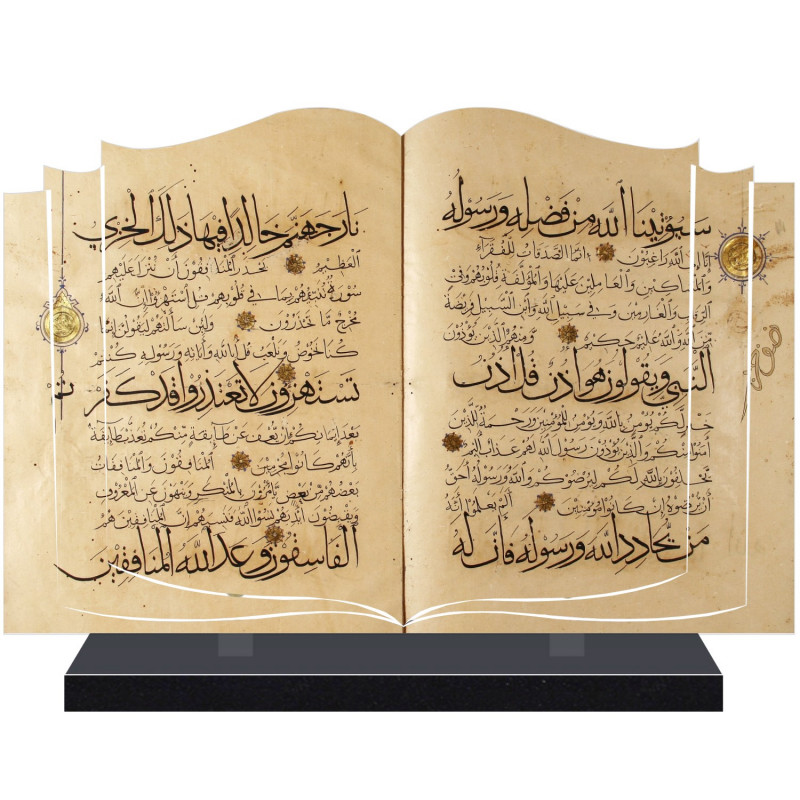 سيؤتينا الله من فضله ورسوله
إنا إلى الله راغبون إنما الصدقات للفقراء
والمساكين والعاملين عليها والمؤلفة قلوبهم وفي
الرقاب والغارمين وفي سبيل الله وابن السبيل فريضة
من الله والله عليم حكيم ومنهم الذين يؤذون
النبي ويقولون هو أذن قل أذن
خير لكم يؤمن بالله ويؤمن للمؤمنين ورحمة للذين
آمنوا منكم والذين يؤذون رسول الله لهم عذاب أليم
يحلفون بالله لكم ليرضوكم والله ورسوله أحق
أن يرضوه إن كانوا مؤمنين ألم يعلموا أنه
من يحادد الله ورسوله فأن له
نار جهنم خالدا فيها ذلك الخزي
العظيم يحذر المنافقون أن تنزل عليهم
سورة تنبئهم بما في قلوبهم قل استهزؤا إن الله
مخرج ما تحذرون ولئن سألتهم ليقولن إنما
كنا نخوض ونلعب قل أبالله وآياته ورسوله كنتم
تستهزؤن لا تعتذروا قد كفرتم
بعد إيمانكم إن نعف عن طائفة منكم نعذب طائفة
بأنهم كانوا مجرمين المنافقون والمنافقات
بعضهم من بعض يأمرون بالمنكر وينهون عن المعروف
ويقبضون أيديهم نسوا الله فنسيهم إن المنافقين هم
الفاسقون وعد الله المنافقين